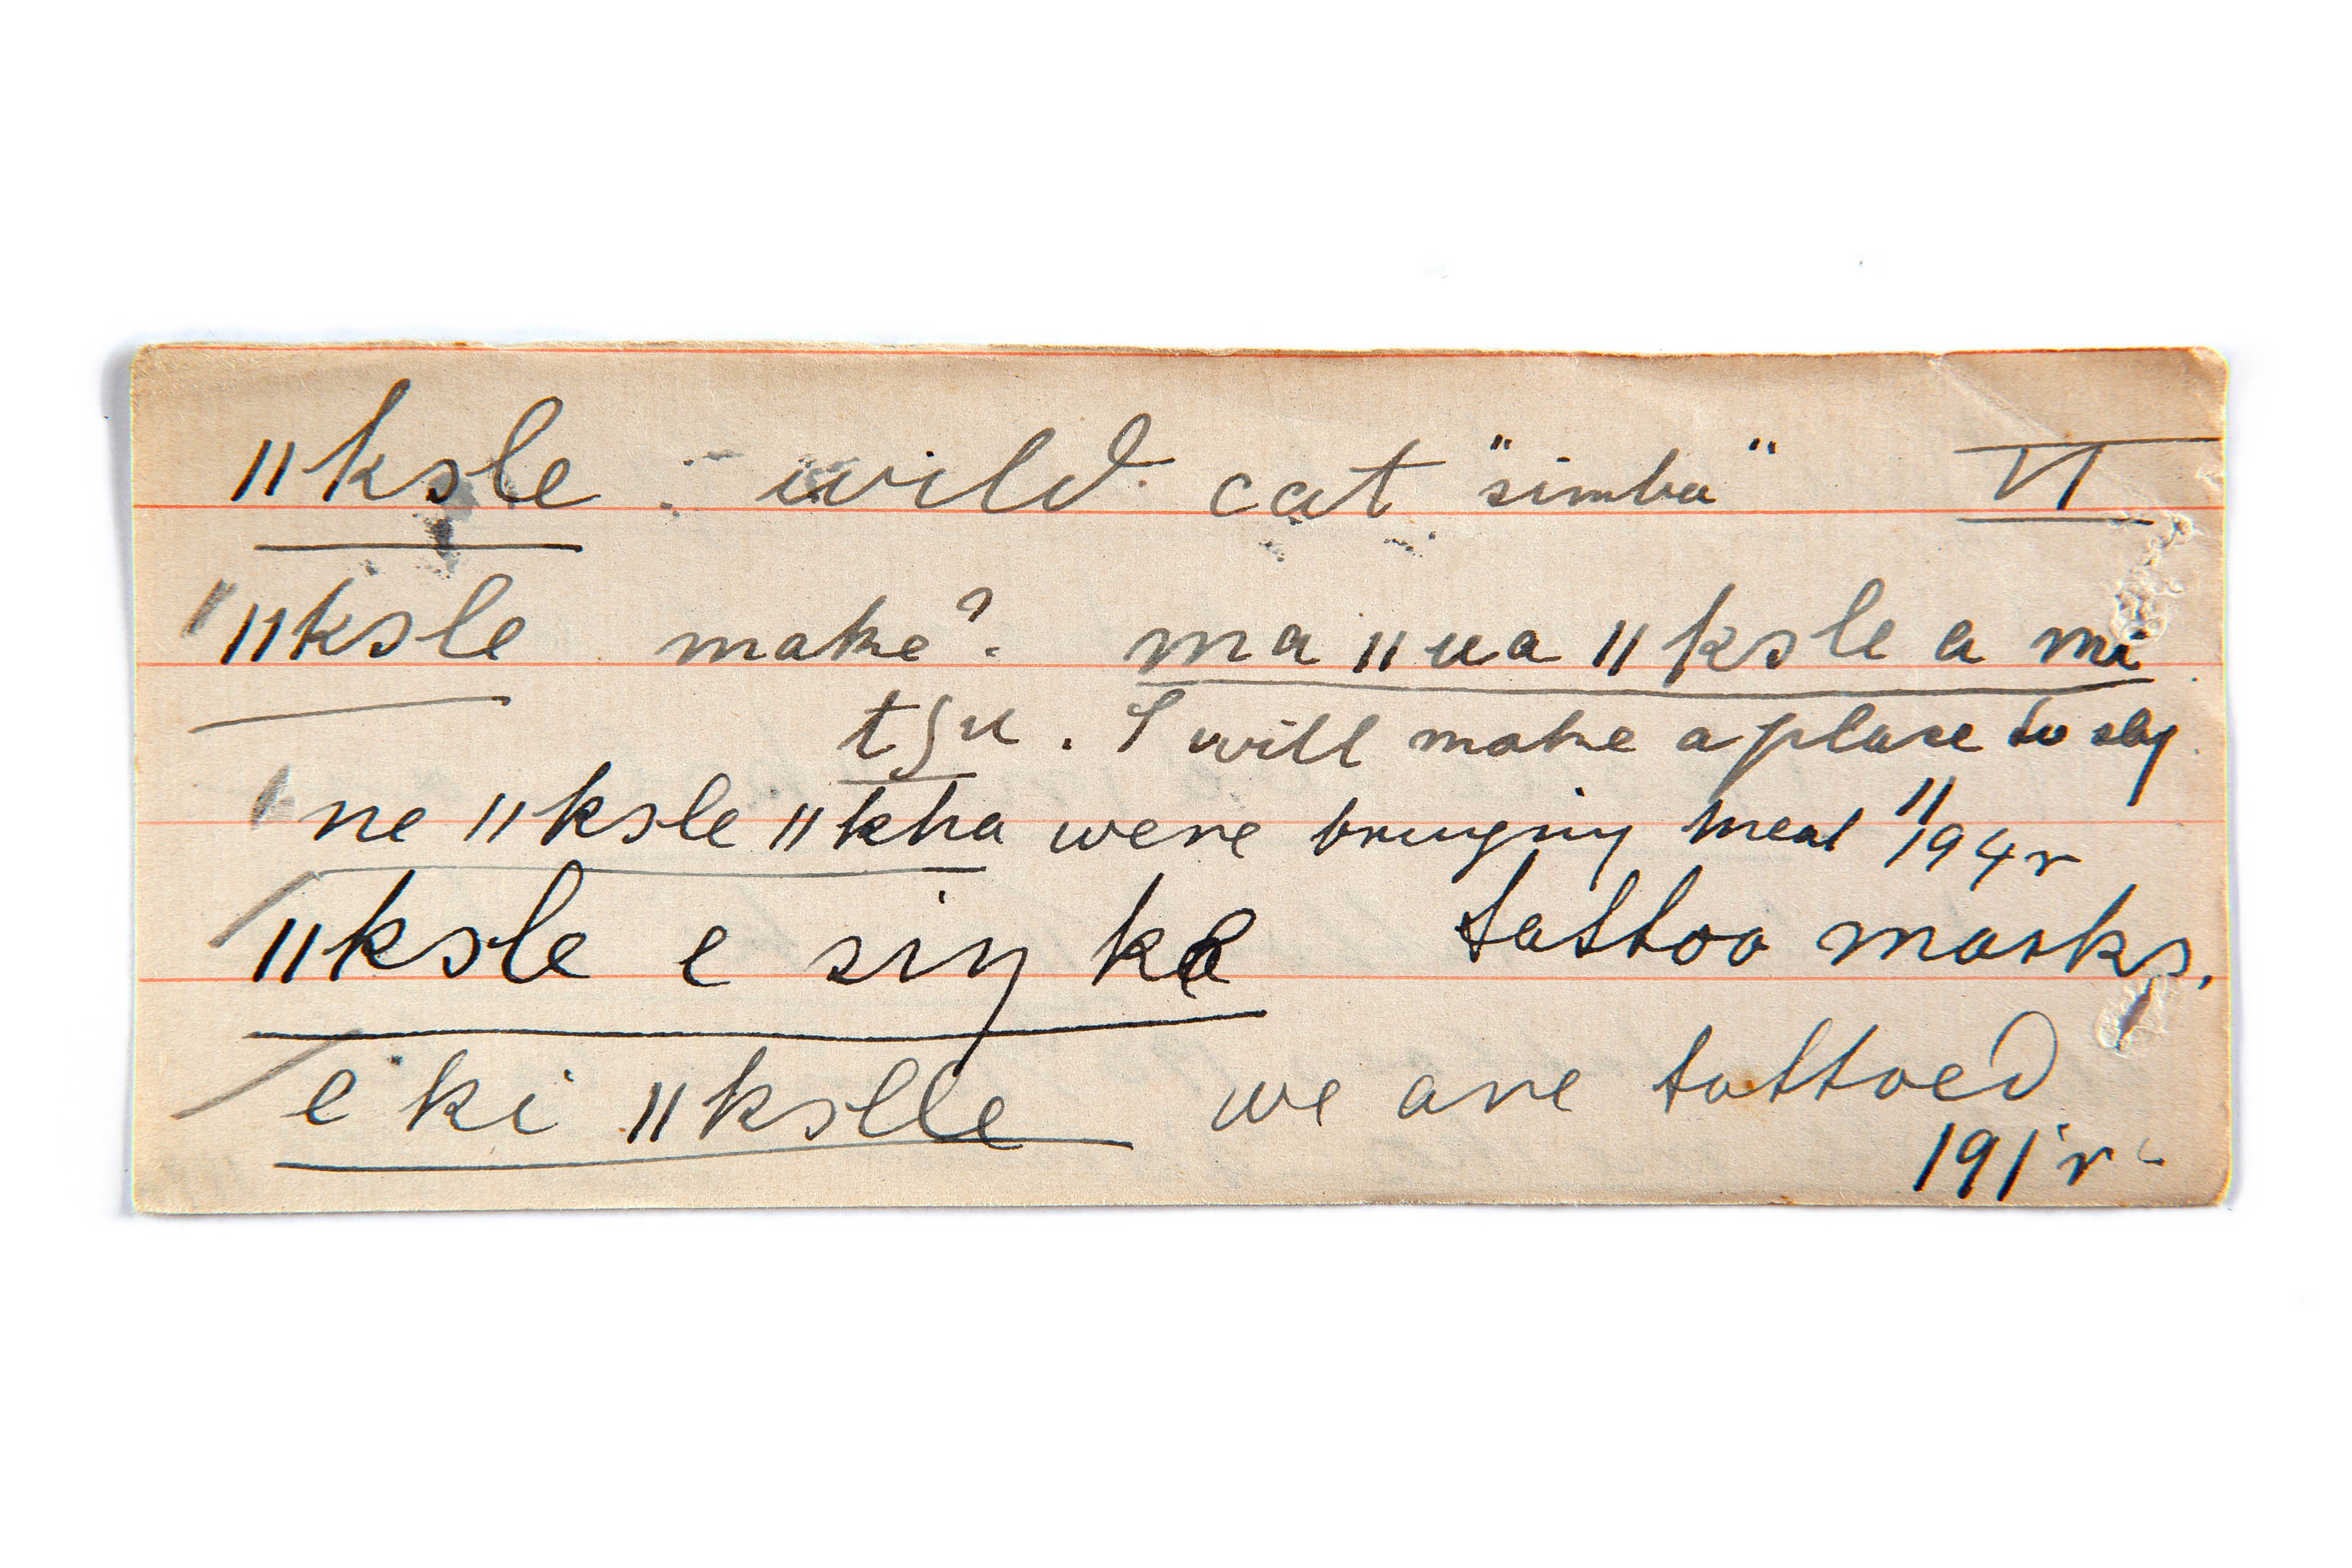 ǁksle : wild cat "simba" VI
ǁksle make? ma ǁua ǁksle a ma
tʃu . I will make a place to
ne ǁksle ǁkha were bringing meat " 194r
ǁksle e siŋ ke tattoo marks.
e ki ǁkslle we are tattoed
191'r